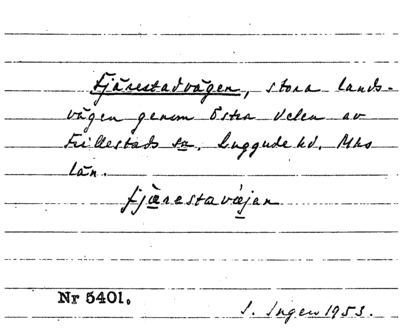 Fjärestadvägen, stora lands-
vägen genom östra delen av
Frillestads sn. Luggude hd. Mhs
län.
fjärestavæjan
Nr 5401.
S. Ingers 1953.